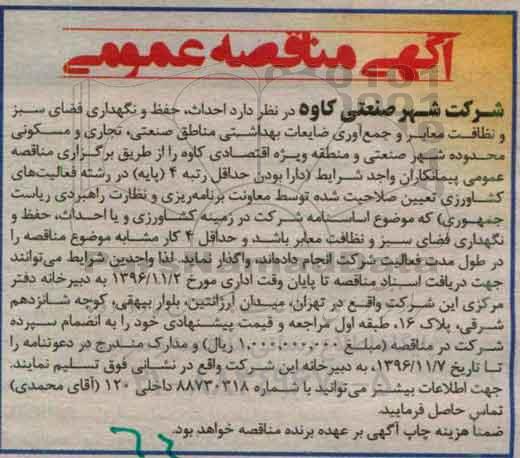 آگهی مناقصه عمومی
شرکت شهر صنعتی کاوه در نظر دارد احداث، حفظ و نگهداری فضای سبز
و نظافت معابر و جمع‌آوری ضایعات بهداشتی مناطق صنعتی، تجاری و مسکونی
محدوده شهر صنعتی و منطقه ویژه اقتصادی کاوه را از طریق برگزاری مناقصه
عمومی پیمانکاران واجد شرایط (دارا بودن حداقل رتبه ۴ (پایه) در رشته فعالیت‌های
کشاورزی تعیین صلاحیت شده توسط معاونت برنامه‌ریزی و نظارت راهبردی ریاست
جمهوری) که موضوع اساسنامه شرکت در زمینه کشاورزی و یا احداث، حفظ و
نگهداری فضای سبز و نظافت معابر باشد و حداقل ۴ کار مشابه موضوع مناقصه را
در طول مدت فعالیت شرکت انجام داده‌اند، واگذار نماید. لذا واجدین شرایط می‌توانند
جهت دریافت اسناد مناقصه تا پایان وقت اداری مورخ ۱۳۹۶/۱۱/۲ به دبیرخانه دفتر
مرکزی این شرکت واقع در تهران، میدان آرژانتین، بلوار بیهقی، کوچه شانزدهم
شرقی، پلاک ۱۶، طبقه اول مراجعه و قیمت پیشنهادی خود را به انضمام سپرده
شرکت در مناقصه (مبلغ ۱,۰۰۰,۰۰۰,۰۰۰ ریال) و مدارک مندرج در دعوتنامه را
تا تاریخ ۱۳۹۶/۱۱/۷، به دبیرخانه این شرکت واقع در نشانی فوق تسلیم نمایند.
جهت اطلاعات بیشتر می‌توانید با شماره ۸۸۷۳۰۳۱۸ داخلی ۱۲۰ (آقای محمدی)
تماس حاصل فرمایید.
ضمناً هزینه چاپ آگهی بر عهده برنده مناقصه خواهد بود.